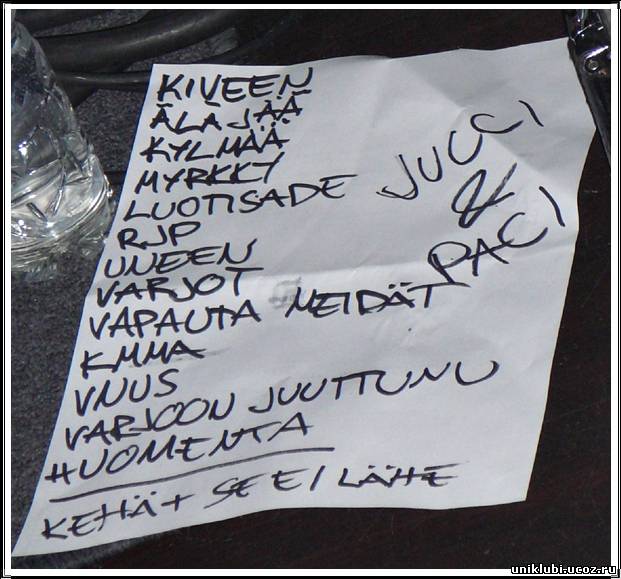 KIVEEN
ÄLÄ JÄÄ
KYLMÄÄ
MYRKKY
LUOTISADE
RJP
UNEEN
VARJOT
VAPAUTA MEIDÄT
KMMA
VNUS
VARJOON JUUTTUNU
HUOMENTA
KEHÄ+ SE EI LÄHE
JUCCI
&
PACI
uniklubi.ucoz.ru